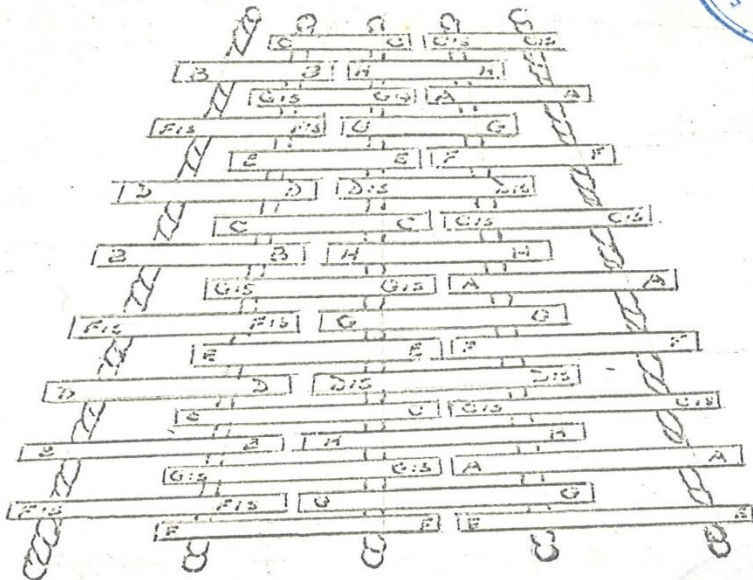 C C Cis Cis
B B H H
Gis Gis A A
Fis Fis G G
E E F F
D D Dis Dis
C C Cis Cis
B B H H
Gis Gis A A
Fis Fis G G
E E F F
D D Dis Dis
C C Cis Cis
B B H H
Gis Gis A A
Fis Fis G G
F F E E